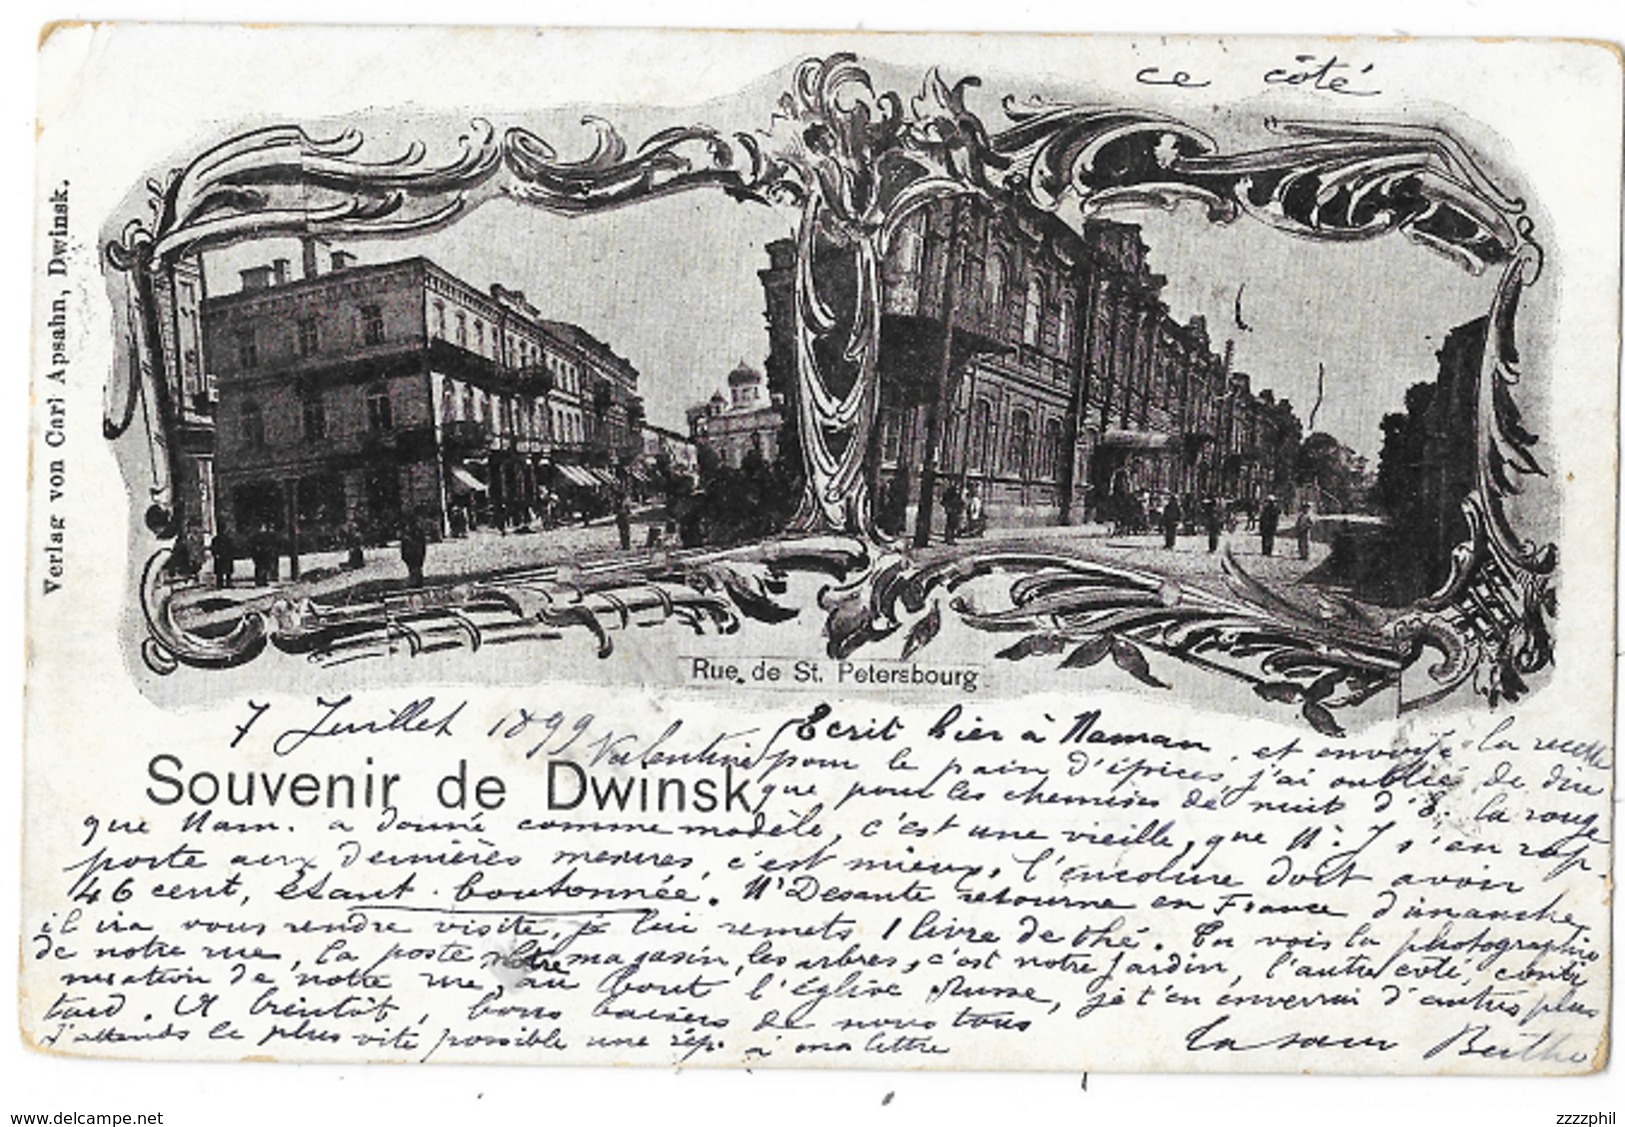 ce côté
Verlag von Carl Apsahn, Dwinsk.
Rue de St. Petersbourg
7 Juillet 1899
Souvenir de Dwinsk
Valentine
Ecrit hier à Maman, et envoyé la recette
pour le pain d'épices, j'ai oublié de dire
que pour les chemises de nuit d'É. la rouge
que Mam. a donné comme modèle, c'est une vieille, que M. J s'en rap-
porte aux dernières mesures, c'est mieux, l'encolure doit avoir
46 cent, étant boutonnée. Mr Desante retourne en France dimanche
il ira vous rendre visite, je lui remets 1 livre de thé. Tu vois la photographie
de notre rue, la poste notre magasin, les arbres, c'est notre jardin, l'autre côté, conti
nuation de notre rue, au bout l'église Russe, je t'en enverrai d'autres plus
tard. A bientôt, bons baisers de nous tous
J'attends le plus vite possible une rép. à ma lettre
Ta sœur Berthe
www.delcampe.net
zzzzphil